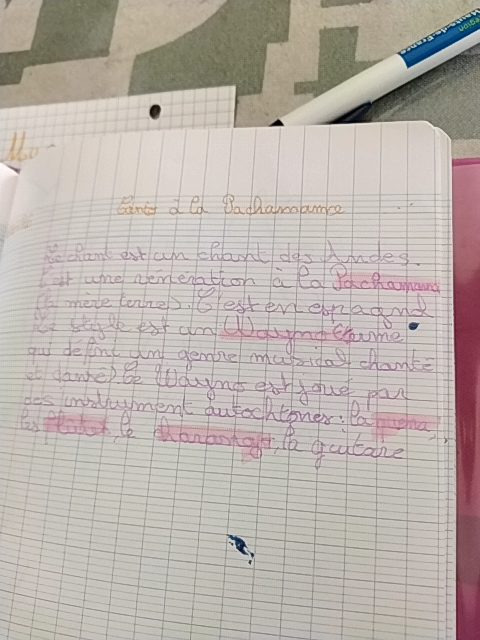 Région
Hauts-de-France
Chant à la Pachamama
Le chant est un chant des Andes.
C'est une vénération à la Pachamama
(la mère terre). C'est en espagnol
Le style est un Wayno (terme
qui définit un genre musical chanté
et dansé) Le Wayno est joué par
des instruyment autochtones : la quena,
les flutes, le charango, la guitare